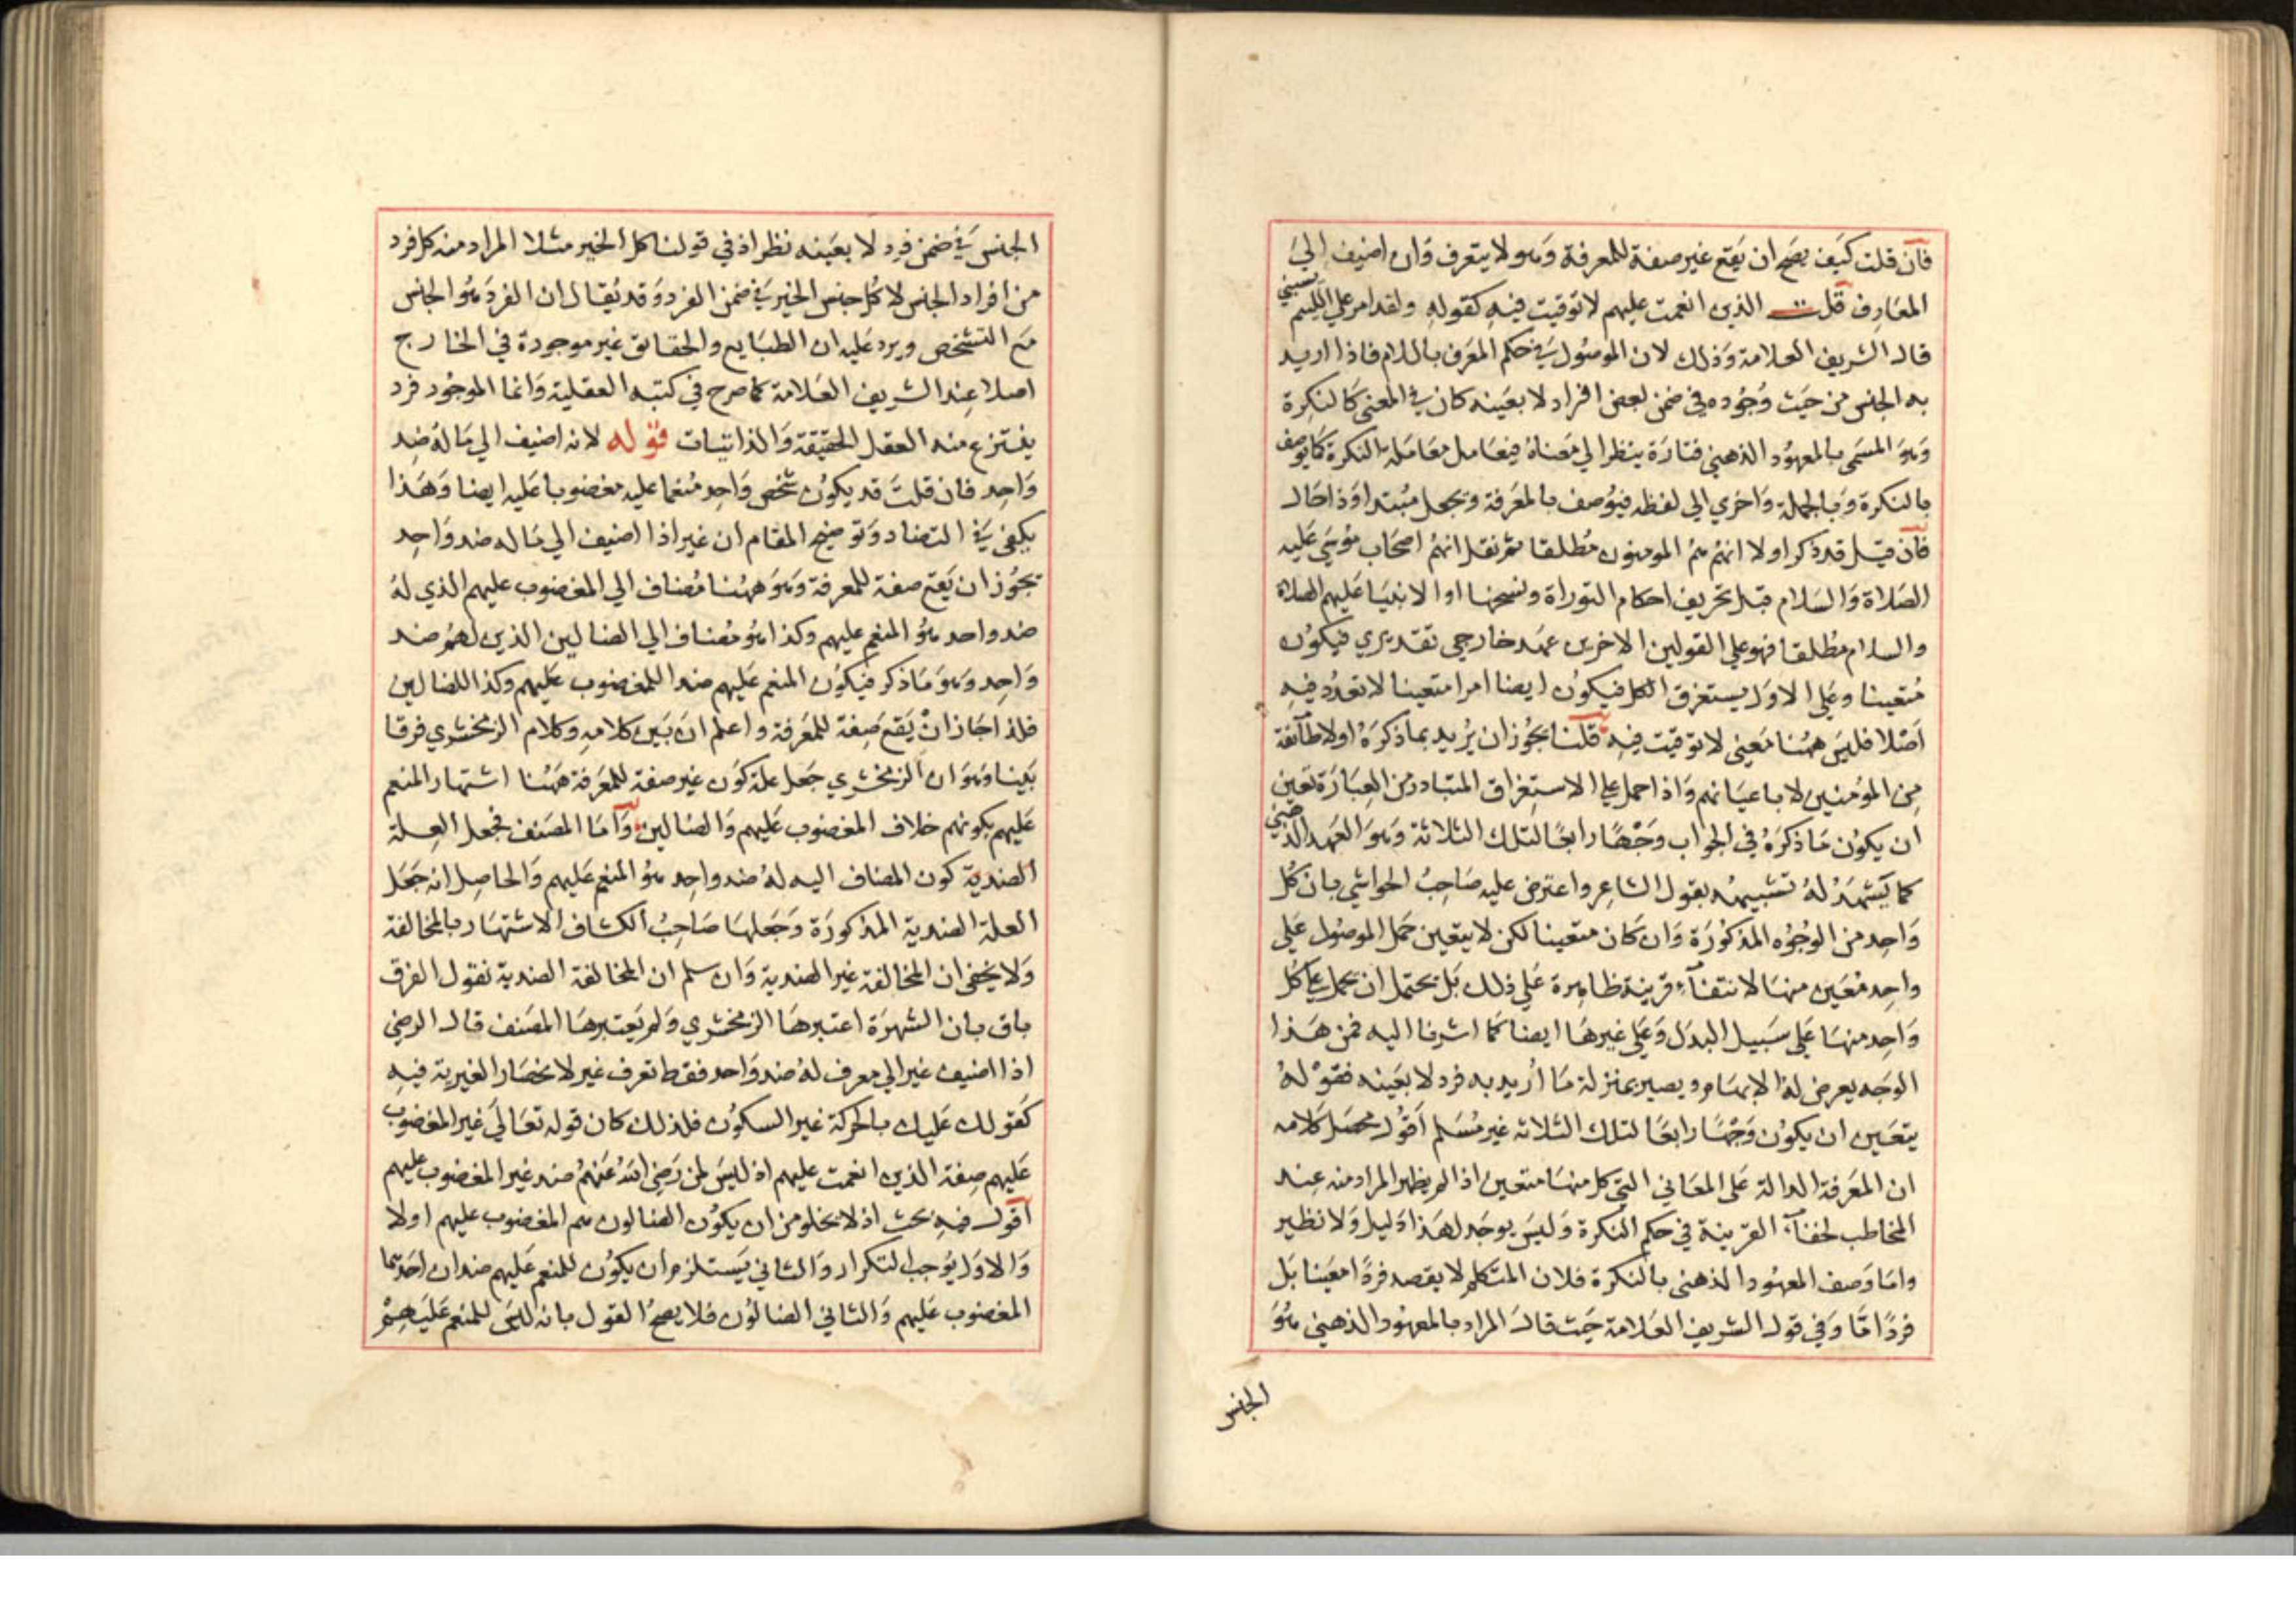 فان قلت كيف يصح ان يقع غير صفة للمعرفة وهو لا يتعرف وان اضيف الي
المعارف قلت الذين انعمت عليهم لا توقيت فيه كقوله ولقد امر علي اللئيم يسبني
قال الشريف العلامة وذلك لان الموصول في حكم المعرف باللام فاذا اريد
به الجنس من حيث وجوده في ضمن بعض افراد لا بعينه كان في المعني كالنكرة
وهو المسمي بالمعهود الذهني فتارة ينظر الي معناه فيعامل معاملة النكرة كايوصف
بالنكرة وبالجملة واخري الي لفظه فيوصف بالمعرفة ويجعل مبتدا وذا حال
فان قيل قد ذكر اولا انهم هم المومنون مطلقا ثم نقل انهم اصحاب موسي عليه
الصلاة والسلام قبل تحريف احكام التوراة ونسخها او الانبيا عليهم الصلاة
والسلام مطلقا فهو علي القولين الاخرين عهد خارجي تقديري فيكون
متعينا وعلي الاول يستغرق الكل فيكون ايضا امرا متعينا لا تعدد فيه
اصلا فليس ههنا معني لا توقيت فيه قلنا يجوز ان يريد بما ذكره اولا طائفة
من المؤمنين لا باعيانهم واذا حمل علي الاستغراق المتبادر من العبارة تعين
ان يكون ما ذكره في الجواب وجها رابعا لتلك الثلاثة وهو العهد الذهني
كما يشهد له تشبيهه بقول الشاعر واعترض عليه صاحب الحواشي بان كل
واحد من الوجوه المذكورة وان كان متعينا لكن لا يتعين حمل الموصول علي
واحد معين منها لانتفاء قرينة ظاهرة علي ذلك بل يحتمل ان يحمل علي كل
واحد منها علي سبيل البدل وعلي غيرها ايضا كما اشرنا اليه فمن هذا
الوجه يعرض له الابهام ويصير بمنزلة ما أريد به فرد لا بعينه فقوله
يتعين ان يكون وجها رابعا لتلك الثلاثة غير مسلم أقول محصل كلامه
ان المعرفة الدالة علي المعاني التي كل منها متعين اذا لم يظهر المراد منه عند
المخاطب لخفاء القرينة في حكم النكرة وليس يوجد لهذا دليل ولا نظير
واما وصف المعهود الذهني بالنكرة فلان المتكلم لا يقصد فردا معينا بل
فردا ما وفي قول الشريف العلامة حيث قال المراد بالمعهود الذهني هو
الجنس
الجنس في ضمن فرد لا بعينه نظر اذ في قولنا كل الخبر مثلا المراد منه كل فرد
من افراد الجنس لا كل جنس الخبر في ضمن الفرد وقد يقال ان الفرد هو الجنس
مع التشخص ويرد عليه ان الطبايع والحقائق غير موجودة في الخارج
اصلا عند الشريف العلامة كما صرح في كتبه العقلية وانما الموجود فرد
ينتزع منه العقل الحقيقة والذاتيات قوله لانه اضيف الي ما له ضد
واحد فان قلت قد يكون شخص واحد منعما عليه مغضوبا عليه ايضا وهذا
يكفي في التضاد وتوضيح المقام ان غير اذا اضيف الي ما له ضد واحد
يجوز ان يقع صفة للمعرفة وهو ههنا مضاف الي المغضوب عليهم الذي له
ضد واحد هو المنعم عليهم وكذا هو مضاف الي الضالين الذين لهم ضد
واحد وهو ما ذكر فيكون المنعم عليهم ضدا للمغضوب عليهم وكذا للضالين
فلذا جاز ان يقع صفة للمعرفة واعلم ان بين كلامه وكلام الزمخشري فرقا
بينا وهو ان الزمخشري جعل علة كون غير صفة للمعرفة ههنا اشتهار المنعم
عليهم بكونهم خلاف المغضوب عليهم والضالين واما المصنف فجعل العلة
الضدية كون المضاف اليه له ضد واحد هو المنعم عليهم والحاصل انه جعل
العلة الضدية المذكورة وجعلها صاحب الكشاف الاشتهار بالمخالفة
ولا يخفي ان المخالفة غير الضدية وان سلم ان المخالفة الضدية نقول الفرق
باق بان الشهرة اعتبرها الزمخشري ولم يعتبرها المصنف قال الرضي
اذا اضيف غير الي معرف له ضد واحد فقط تعرف غير لانحصار الغيرية فيه
كقولك عليك بالحركة غير السكون فلذلك كان قوله تعالي غير المغضوب
عليهم صفة الذين انعمت عليهم اذ ليس لمن رضي الله عنهم ضد غير المغضوب عليهم
أقول فيه بحث اذ لا يخلو من ان يكون الضالون هم المغضوب عليهم اولا
والاول يوجب التكرار والثاني يستلزم ان يكون للمنعم عليهم ضدان احدهما
المغضوب عليهم والثاني الضالون فلا يصح القول بانه ليس للمنعم عليهم